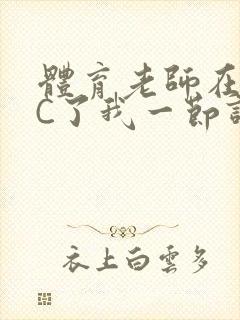 體育老師在
C了我一節
衣上白雲多